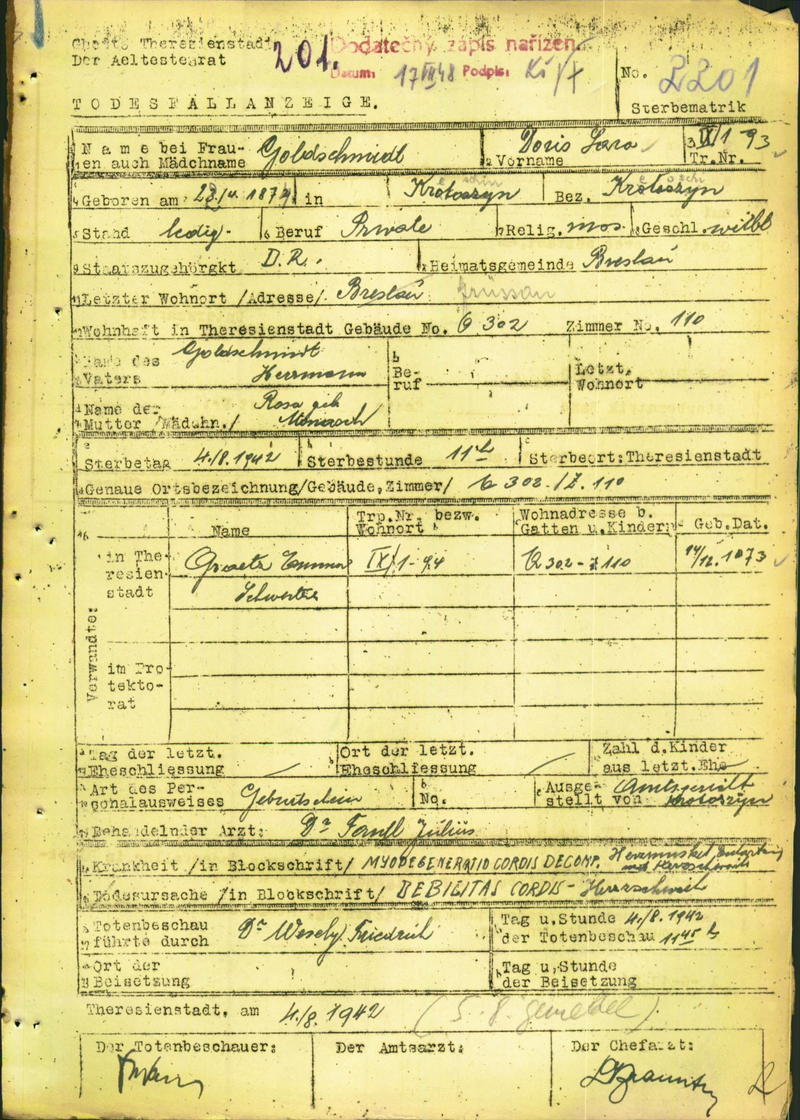 Ghetto Theresienstadt 201. Dodatečný zápis nařízen.
Der Aeltestenrat Datum: 17 VII 48 Podpis:
No. 2201
TODESFALLANZEIGE. Sterbematrik
Name bei Frauen auch Mädchname Goldschmidt Vorname Doris Sara Tr.Nr. IX/1 93
Geboren am in Krotoszyn Bez. Krotoszyn
Stand ledig- Beruf Private Relig. mos. Geschl. weibl
Staatszugehörgkt D.R. Heimatsgemeinde Breslau
Letzter Wohnort /Adresse/ Breslau Grüssau
Wohnhaft in Theresienstadt Gebäude No. Q 302 Zimmer No. 110
Name des Goldschmidt Be- Letzt.
Vaters Herrmann ruf Wohnort
Name der Rosa geb
Mutter /Mädchn./
Sterbetag 4./8. 1942 Sterbestunde 11 h Sterbeort: Theresienstadt
Genaue Ortsbezeichnung/Gebäude, Zimmer/ Q 302 /Z. 110
Name Trp.Nr. bezw. Wohnort Wohnadresse b. Gatten u. Kindern Geb.Dat.
Verwandte:
in The- IX/1-94 Q 302 - Z 110 14/12. 1873
resien- Schwester
stadt
im Pro-
tekto-
rat
Tag der letzt. Ort der letzt. Zahl d. Kinder
Eheschliessung Eheschliessung aus letzt. Ehe
Art des Per- Geburtschein No. Ausge- Amtsgericht
sonalausweises stellt von Krotoszyn
Behandelnder Arzt: Dr Julius
Krankheit /in Blockschrift/ MYODEGENERATIO CORDIS DECOMP.
Todesursache /in Blockschrift/ DEBILITAS CORDIS -
Totenbeschau Dr Wesely Friedrich Tag u. Stunde 4./8. 1942
führte durch der Totenbeschau 11 45 h
Ort der Tag u. Stunde
Beisetzung der Beisetzung
Theresienstadt, am 4./8. 1942
Der Totenbeschauer: Der Amtsarzt: Der Chefarzt: